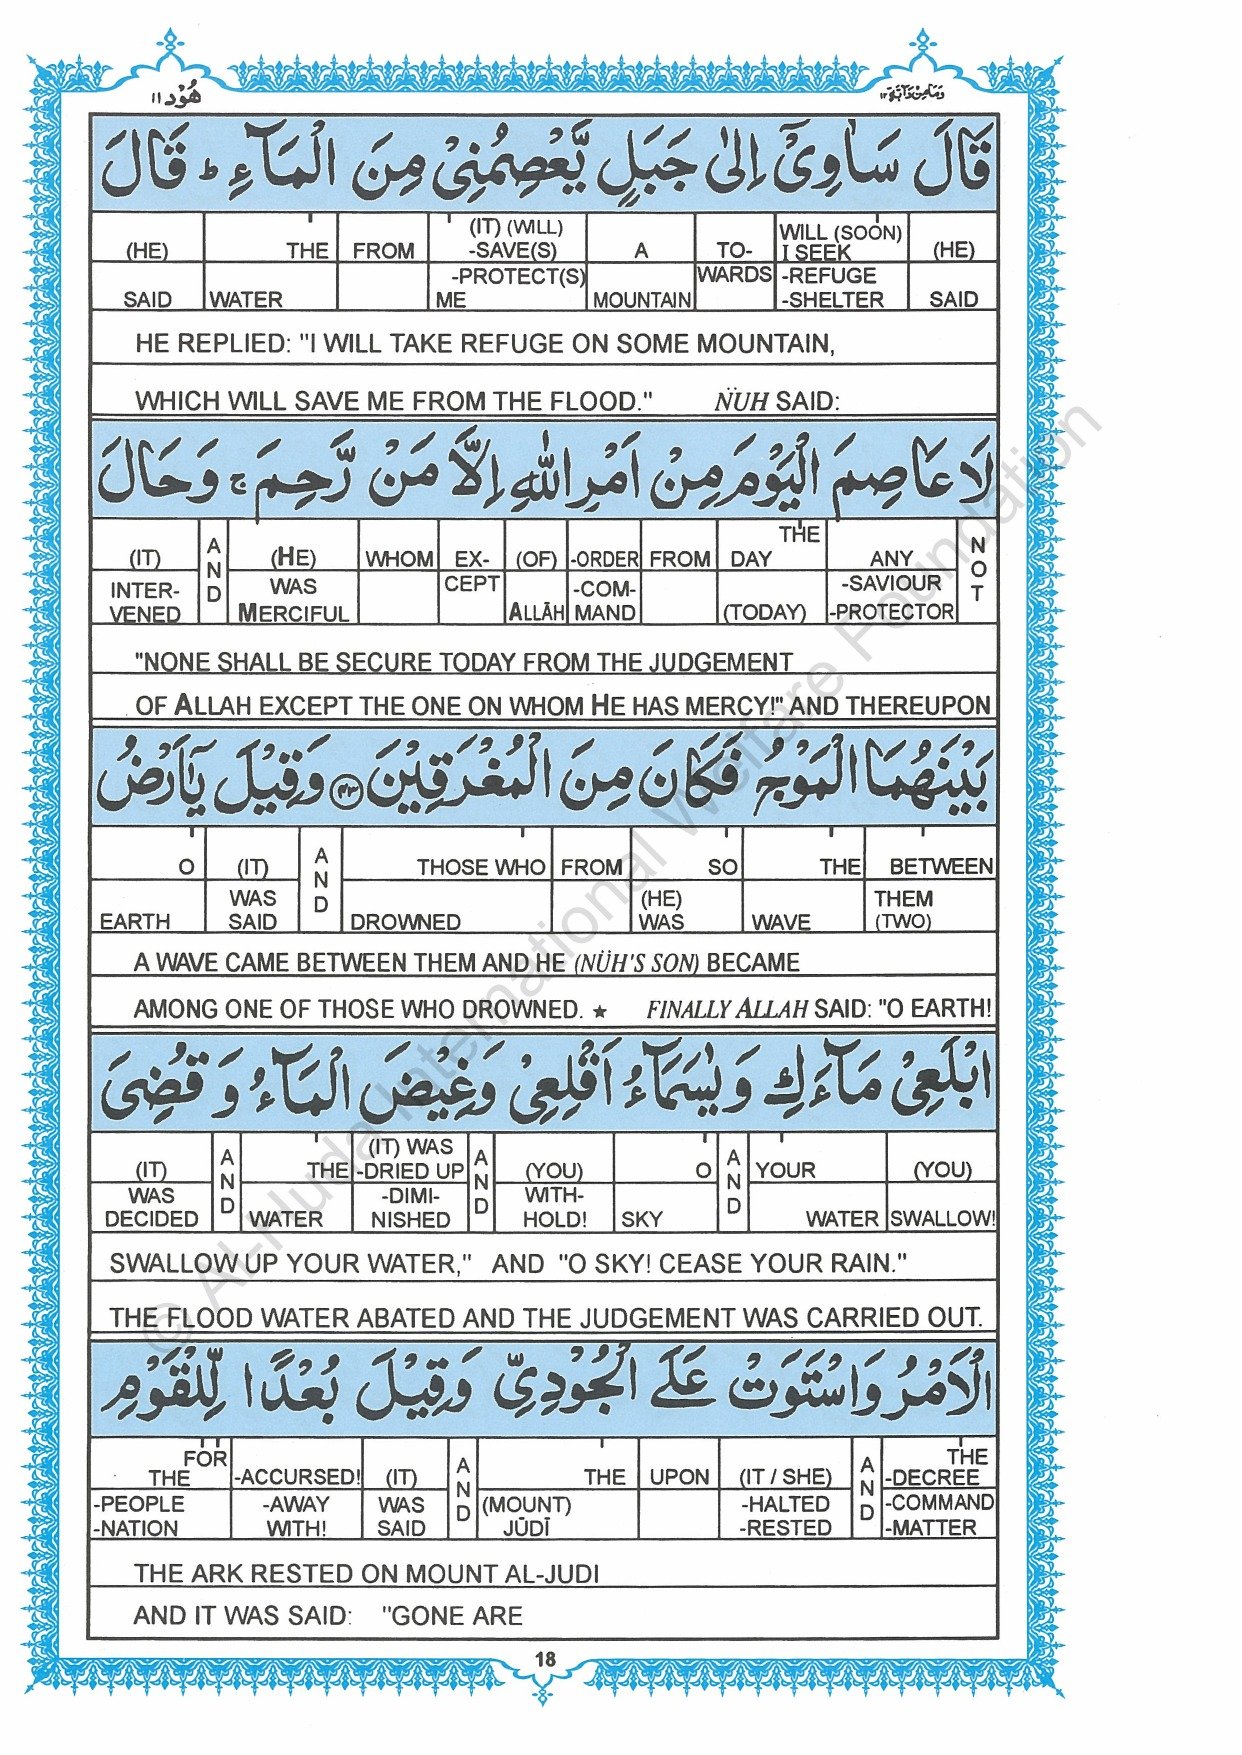 هُوْد ١١
وَمَا مِنْ دَآبَّةٍ ١٢
قَالَ سَاٰوِیْۤ اِلٰی جَبَلٍ یَّعْصِمُنِیْ مِنَ الْمَآءِ ؕ قَالَ
(HE) THE FROM (IT) (WILL) -SAVE(S) A TO- WILL (SOON) I SEEK (HE)
SAID WATER -PROTECT(S) ME MOUNTAIN WARDS -REFUGE -SHELTER SAID
HE REPLIED: "I WILL TAKE REFUGE ON SOME MOUNTAIN,
WHICH WILL SAVE ME FROM THE FLOOD." N̈UH SAID:
لَا عَاصِمَ الْیَوْمَ مِنْ اَمْرِ اللّٰهِ اِلَّا مَنْ رَّحِمَ ۚ وَحَالَ
(IT) AND (HE) WHOM EX- (OF) -ORDER FROM THE DAY ANY NOT
INTER- VENED WAS MERCIFUL CEPT ALLĀH -COM- MAND (TODAY) -SAVIOUR -PROTECTOR
"NONE SHALL BE SECURE TODAY FROM THE JUDGEMENT
OF ALLAH EXCEPT THE ONE ON WHOM HE HAS MERCY!" AND THEREUPON
بَیْنَهُمَا الْمَوْجُ فَكَانَ مِنَ الْمُغْرَقِیْنَ ﴿٤٣﴾ وَقِیْلَ یٰۤاَرْضُ
O (IT) AND THOSE WHO FROM SO THE BETWEEN
EARTH WAS SAID DROWNED (HE) WAS WAVE THEM (TWO)
A WAVE CAME BETWEEN THEM AND HE (NÜH'S SON) BECAME
AMONG ONE OF THOSE WHO DROWNED. ★ FINALLY ALLAH SAID: "O EARTH!
ابْلَعِیْ مَآءَكِ وَیٰسَمَآءُ اَقْلِعِیْ وَغِیْضَ الْمَآءُ وَقُضِیَ
(IT) AND THE (IT) WAS -DRIED UP AND (YOU) O AND YOUR (YOU)
WAS DECIDED WATER -DIMI- NISHED WITH- HOLD! SKY WATER SWALLOW!
SWALLOW UP YOUR WATER," AND "O SKY! CEASE YOUR RAIN."
THE FLOOD WATER ABATED AND THE JUDGEMENT WAS CARRIED OUT.
الْاَمْرُ وَاسْتَوَتْ عَلَی الْجُوْدِیِّ وَقِیْلَ بُعْدًا لِّلْقَوْمِ
FOR THE -ACCURSED! (IT) AND THE UPON (IT / SHE) AND THE -DECREE
-PEOPLE -NATION -AWAY WITH! WAS SAID (MOUNT) JŪDĪ -HALTED -RESTED -COMMAND -MATTER
THE ARK RESTED ON MOUNT AL-JUDI
AND IT WAS SAID: "GONE ARE
18
© Al-Huda International Welfare Foundation